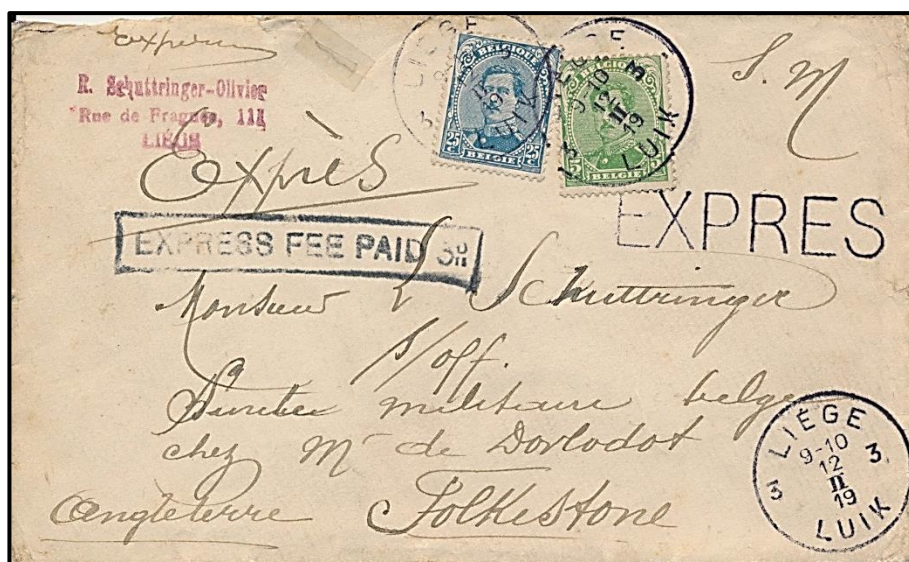 S. M
R. Schuttringer-Olivier
Rue de Fragnée, 111
LIÉGE
LIEGE 3 LUIK
BELGIQUE
25 25
BELGIË
LIEGE 3
9-10
12
II
19
LUIK 3
BELGIQUE
5 5
BELGIË
Exprès
EXPRES
EXPRESS FEE PAID 3D
Monsieur L Schuttringer
s/off.
Sureté militaire belge
chez Mr de Dorlodot
Angleterre Folkestone
LIÉGE
9-10
3 12 3
II
19
LUIK